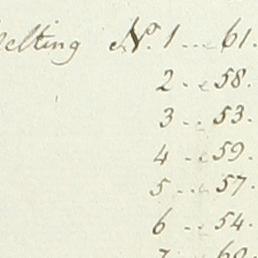 elting No. 1 ... 61.
2 ... 58.
3 ... 53.
4 ... 59.
5 ... 57.
6 ... 54.
7 ... 60.